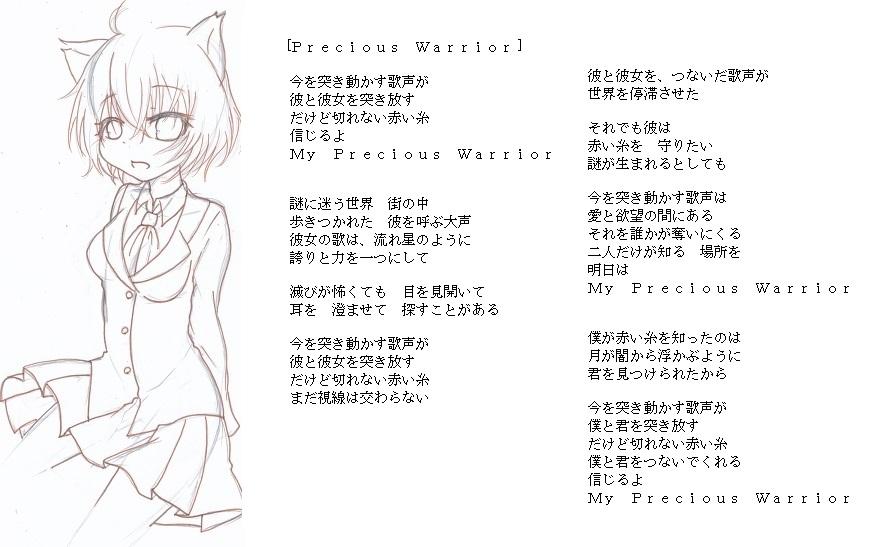 [Precious Warrior]
今を突き動かす歌声が
彼と彼女を突き放す
だけど切れない赤い糸
信じるよ
My Precious Warrior
謎に迷う世界　街の中
歩きつかれた　彼を呼ぶ大声
彼女の歌は、流れ星のように
誇りと力を一つにして
滅びが怖くても　目を見開いて
耳を　澄ませて　探すことがある
今を突き動かす歌声が
彼と彼女を突き放す
だけど切れない赤い糸
まだ視線は交わらない
彼と彼女を、つないだ歌声が
世界を停滞させた
それでも彼は
赤い糸を　守りたい
謎が生まれるとしても
今を突き動かす歌声は
愛と欲望の間にある
それを誰かが奪いにくる
二人だけが知る　場所を
明日は
My Precious Warrior
僕が赤い糸を知ったのは
月が闇から浮かぶように
君を見つけられたから
今を突き動かす歌声が
僕と君を突き放す
だけど切れない赤い糸
僕と君をつないでくれる
信じるよ
My Precious Warrior